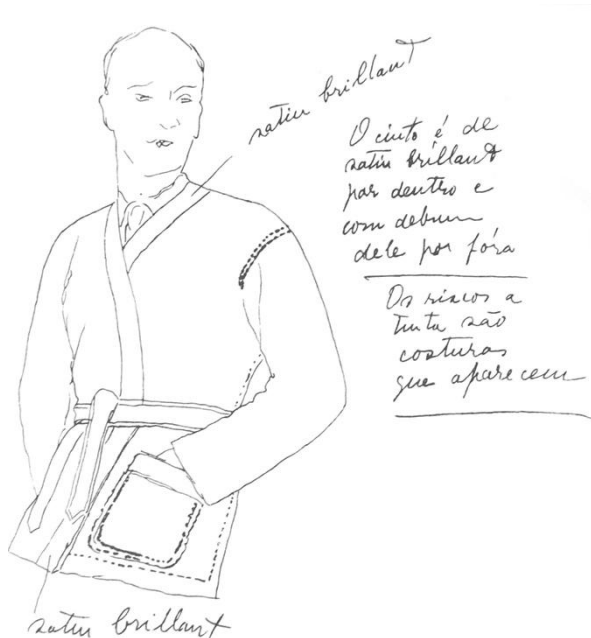 satin brillant
O cinto é de
satin brillant
por dentro e
com debrum
dele por fóra
Os riscos a
tinta são
costuras
que aparecem
satin brillant